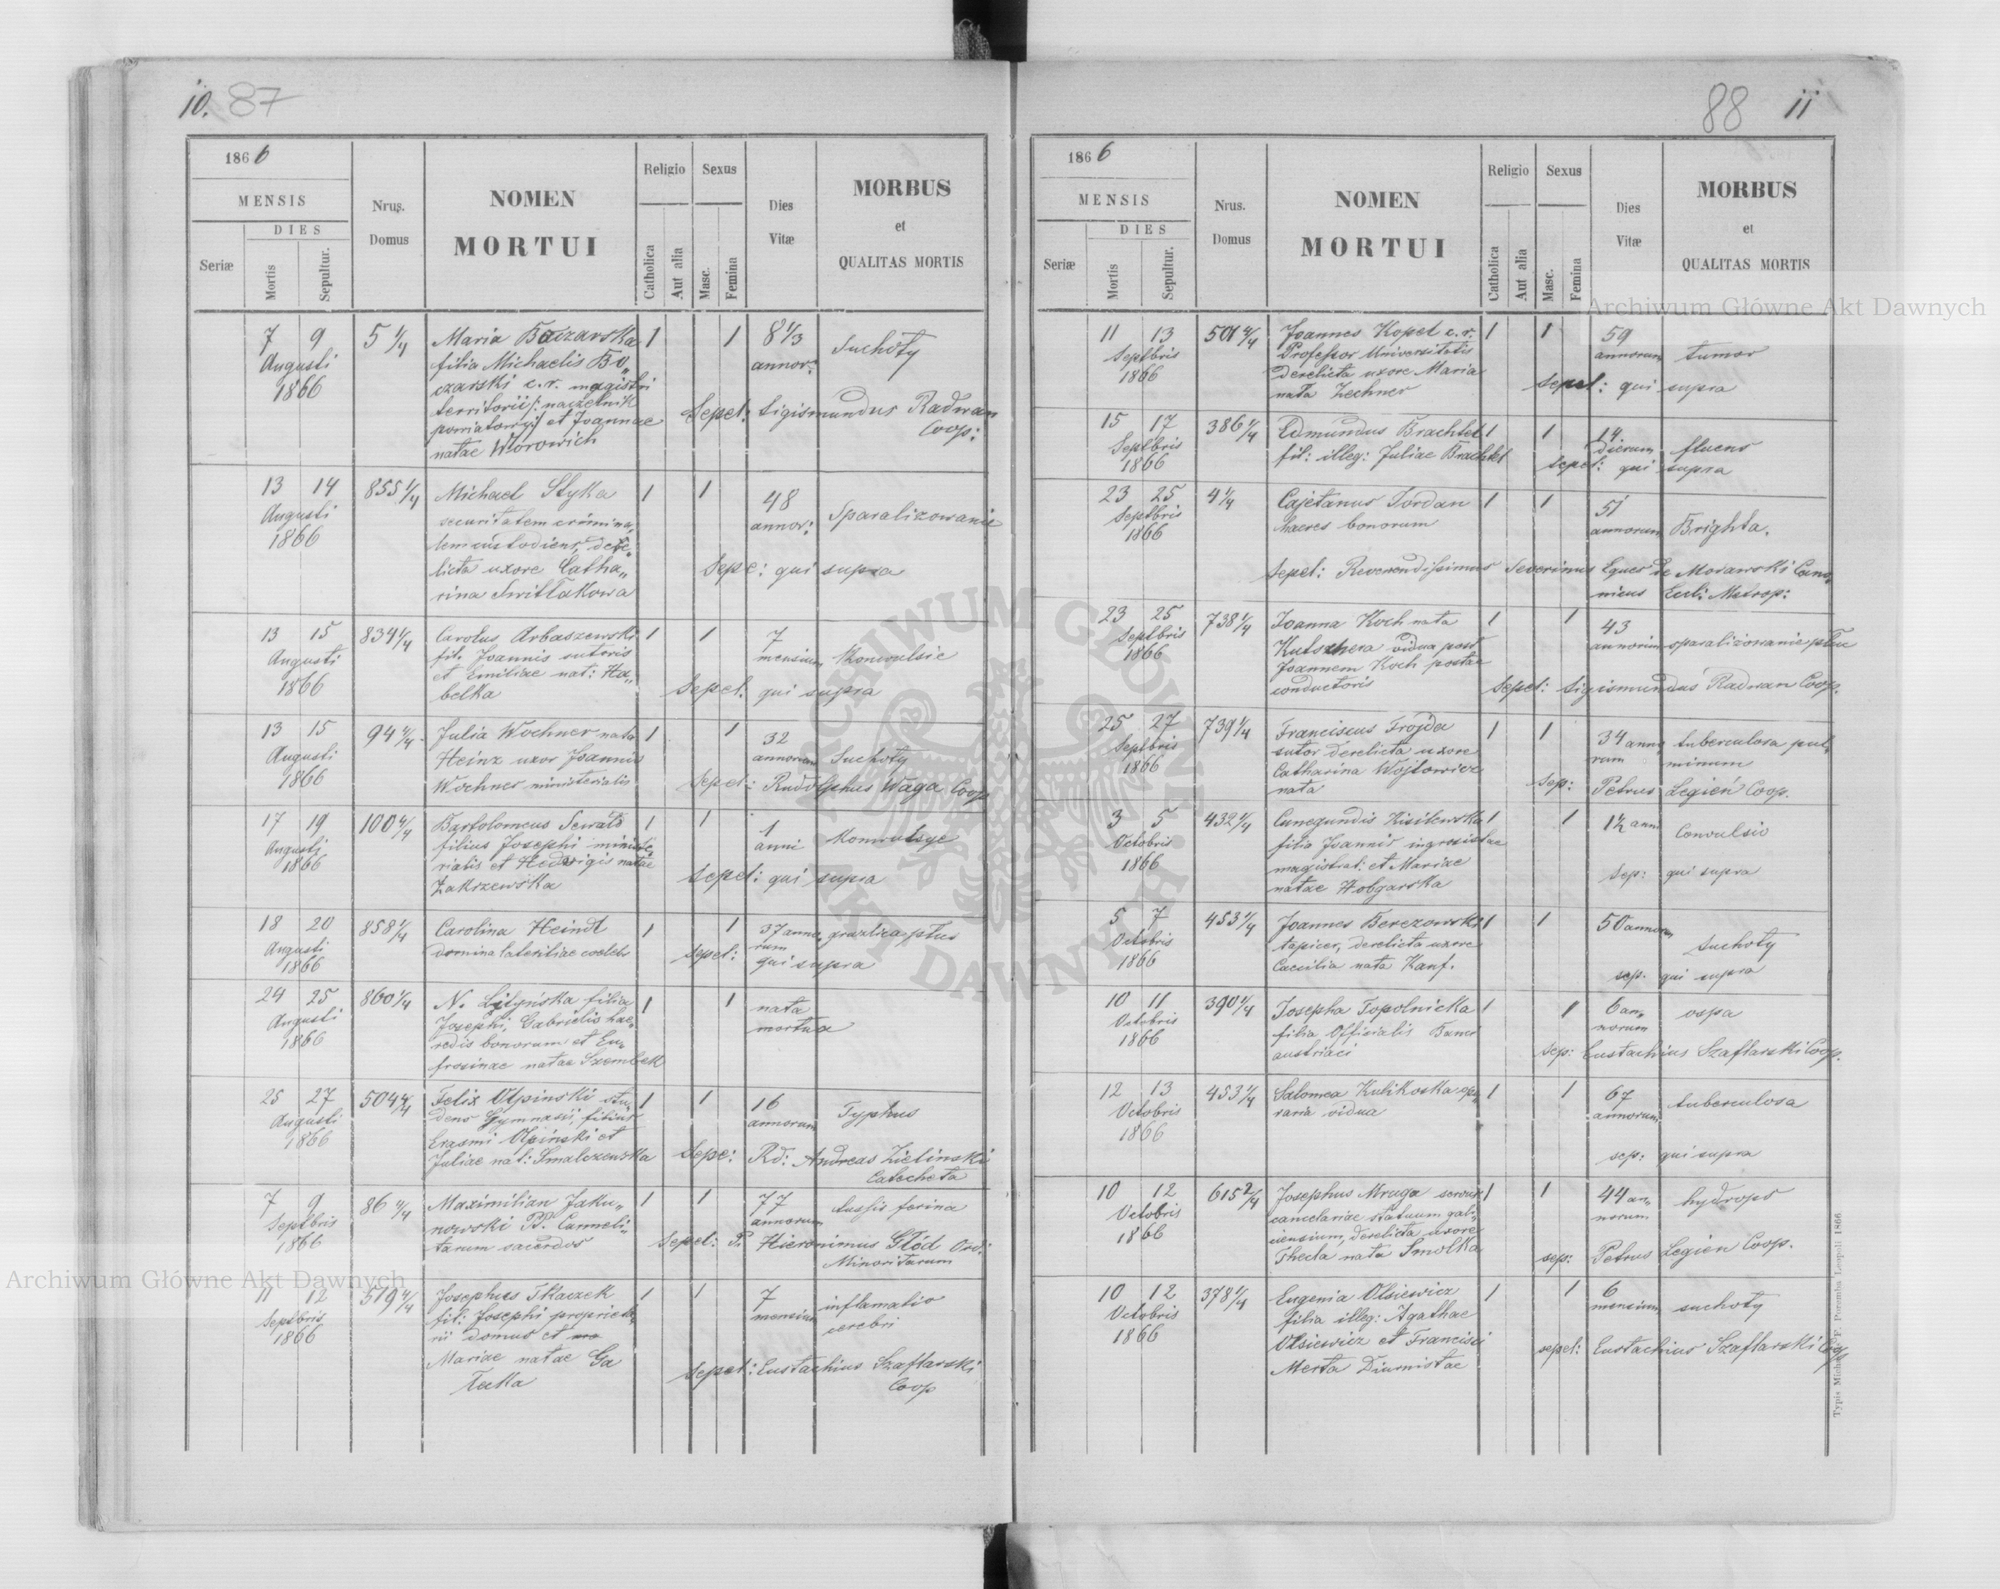 10. 87
1866
MENSIS
DIES
Seriæ
Mortis
Sepultur.
Nrus.
Domus
NOMEN
MORTUI
Religio
Catholica
Aut alia
Sexus
Masc.
Femina
Dies
Vitæ
MORBUS
et
QUALITAS MORTIS
7 9
Augusti
1866
5 1/4
Maria Baczarska
filia Michaelis Bo„
czarski c.r. magistri
territorii /: naczelnik
powiatowy:/ et Joannae
natae Worowich
1 1
8 1/3
annor:
Suchoty
Sepel: Sigismundus Radwan
Coop:
13 14
Augusti
1866
855 1/4
Michael Styka
securitatem crimina„
lem custodiens, dere„
licta uxore Catha„
rina
1 1
48
annor:
Sparalizowanie
Sepe: qui supra
13 15
Augusti
1866
834 1/4
Carolus Arbaszewski
fil. Joannis sutoris
et Emiliae nat: Ha„
belka
1 1
7
mensium
Konwulsie
Sepel: qui supra
13 15
Augusti
1866
94 4/4
Julia Wochner nata
Heinz uxor Joannis
Wochner ministerialis
1 1
32
annorum
Suchoty
Sepel: Rudolphus Waga Coop
17 19
Augusti
1866
100 4/4
Bartolomeus
filius Josephi ministe„
rialis et Hedwigis natae
Zakrzewska
1 1
1
anni
Konwulsye
Sepel: qui supra
18 20
Augusti
1866
858 1/4
Carolina Heindl
domina lateritiae coelebs
1 1
37 anno„
rum
gruzlica płuc
Sepel: qui supra
24 25
Augusti
1866
860 1/4
N. filia
Josephi, Gabrielis hae„
redis bonorum et Eu„
frosinae natae Szembek
1 1
nata
mortua
25 27
Augusti
1866
504 4/4
Felix Olpinski stu„
dens Gymnasii, filius
Erasmi Olpinski et
Juliae nat: Smalczewska
1 1
16
annorum
Typhus
Sepe: Rd: Andreas Zielinski
Catecheta
7 9
Septbris
1866
86 4/4
Maximilian Jaku„
nowski PP. Carmeli„
tarum sacerdos
1 1
77
annorum
tussis ferina
Sepel: P. Hieronimus Głód Ord:
Minoritarum
11 12
Septbris
1866
519 4/4
Josephus Tkaczek
fil: Josephi proprieta„
rii domus et
Mariae natae Ga
1 1
7
mensium
inflamatio
cerebri
Sepel: Eustachius Szaflarski
Coop
88 11
1866
MENSIS
DIES
Seriæ
Mortis
Sepultur.
Nrus.
Domus
NOMEN
MORTUI
Religio
Catholica
Aut alia
Sexus
Masc.
Femina
Dies
Vitæ
MORBUS
et
QUALITAS MORTIS
11 13
Septbris
1866
501 4/4
Joannes Kopel c.r.
Professor Universitatis
derelicta uxore Maria
nata Zechner
1 1
59
annorum
tumor
Sepel: qui supra
15 17
Septbris
1866
386 1/4
Edmundus Brachtel
fil: illeg: Juliae Brachtel
1 1
14
Dierum
fluens
Sepel: qui supra
23 25
Septbris
1866
4 1/4
Cajetanus Jordan
haeres bonorum
1 1
51
annorum
Brighta.
Sepel: Reverendissimus Severinus Eques de Morawski Cano„
nicus Eccl: Metrop:
23 25
Septbris
1866
738 1/4
Joanna Koch nata
Kutschera vidua post
Joannem Koch postae
conductoris
1 1
43
annorum
sparaliżowanie płuc
Sepel: Sigismundus Radwan Coop.
25 27
Septbris
1866
739 1/4
Franciscus Frojda
sutor derelicta uxore
Catharina Wojtowicz
nata
1 1
34 anno
rum
tuberculosa pul„
minum
Sep: Petrus Legień Coop.
3 5
Octobris
1866
432 1/4
Cunegundis Kisilewska
filia Joannis ingrosistae
magistrat: et Mariae
natae Hobgarska
1 1
1 1/2 anni
Convulsio
sep: qui supra
5 7
Octobris
1866
453 1/4
Joannes Berezowski
tapicer, derelicta uxore
Caecilia nata Kanf.
1 1
50 annorum
Suchoty
sep: qui supra
10 11
Octobris
1866
390 1/4
Josepha Topolnicka
filia Officialis Banci
austriaci
1 1
6 an„
norum
ospa
sep: Eustachius Szaflarski Coop.
12 13
Octobris
1866
453 1/4
Salomea Kulikoska ope„
raria vidua
1 1
67
annorum
tuberculosa
sep: qui supra
10 12
Octobris
1866
615 2/4
Josephus Mruga servus
cancelariae statuum gali„
ciensium, derelicta uxore
Thecla nata Smolka
1 1
44 an„
norum
hydrops
sep: Petrus Legien Coop.
10 12
Octobris
1866
378 1/4
Eugenia Olsiewicz
filia illeg: Agathae
Olsiewicz et Francisci
Merta Diurnistae
1 1
6
mensium
suchoty
sepel: Eustachius Szaflarski Coop
Typis Michael F. Poremba Leopoli 1866
Archiwum Główne Akt Dawnych
Archiwum Główne Akt Dawnych
ARCHIWUM GŁÓWNE AKT DAWNYCH